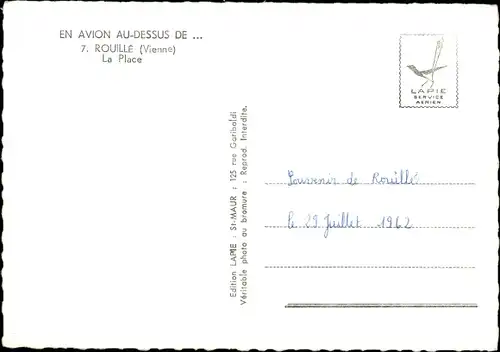 EN AVION AU-DESSUS DE ...
7. ROUILLÉ (Vienne)
La Place
LAPIE
SERVICE
AÉRIEN
Edition LAPIE : St-MAUR : 125 rue Garibaldi
Véritable photo au bromure : Reprod. Interdite.
Souvenir de Rouillé
le 29 Juillet 1962